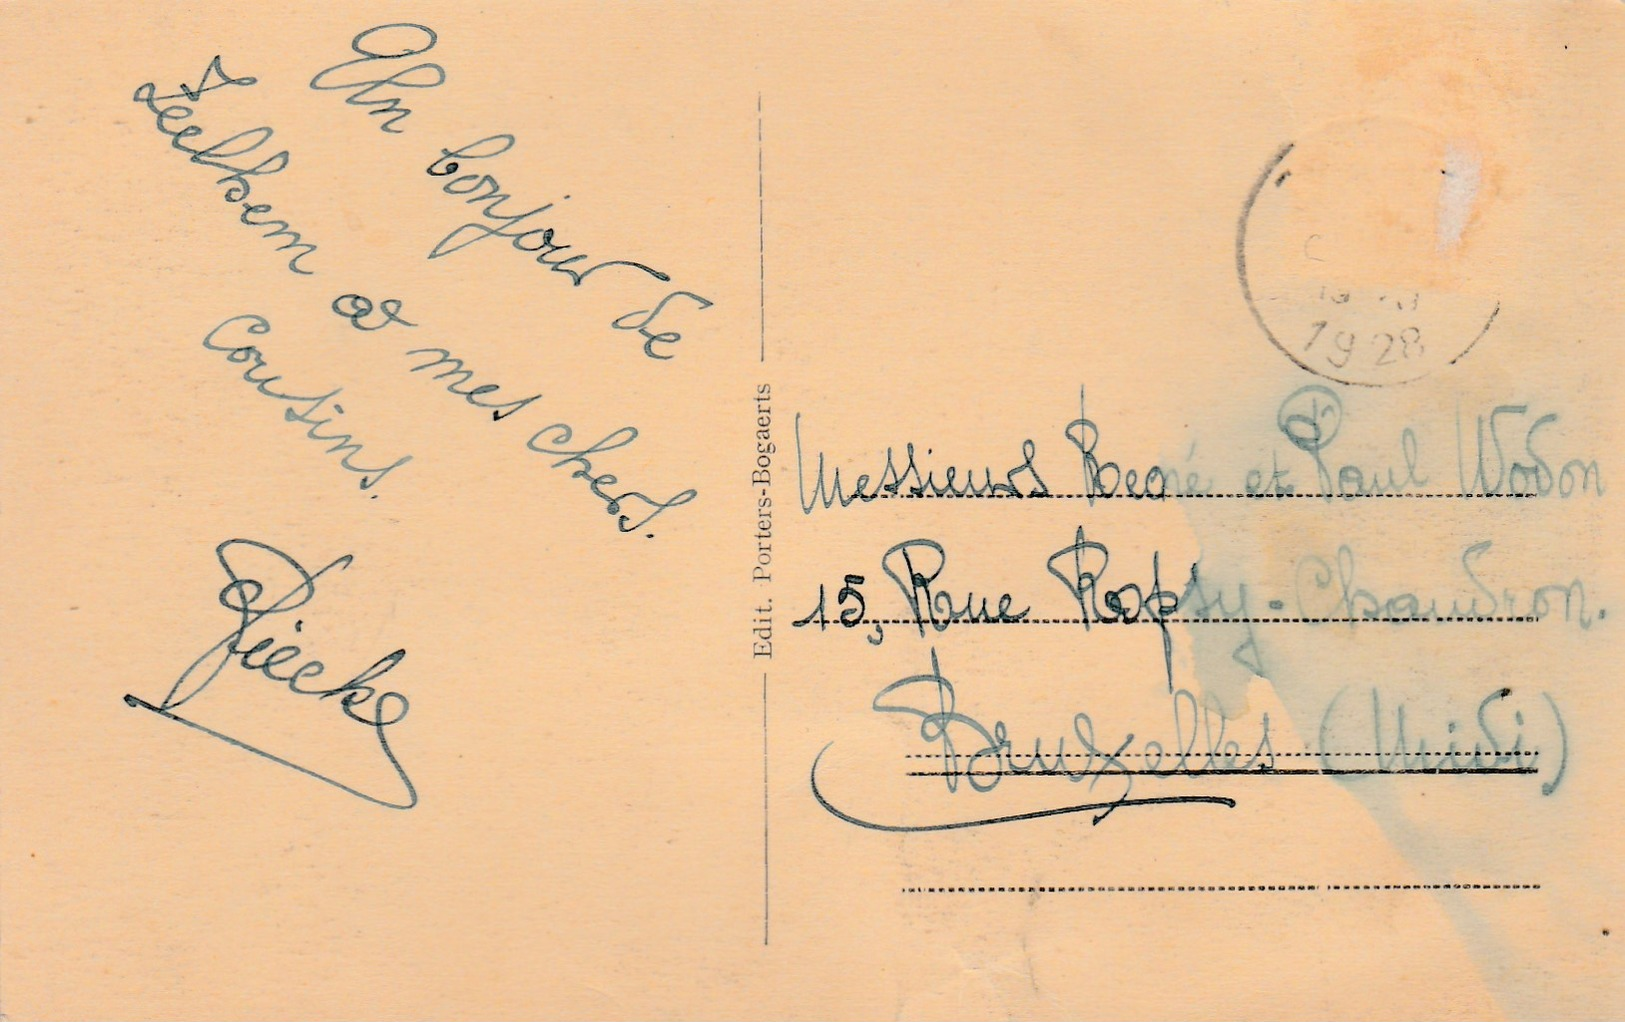 Un bonjour de
Zeelhem à mes chers
cousins.
Edit. Porters-Bogaerts
1928
Messieurs René et Paul Wodon
15, Rue Ropsy-Chaudron.
Bruxelles (Midi)